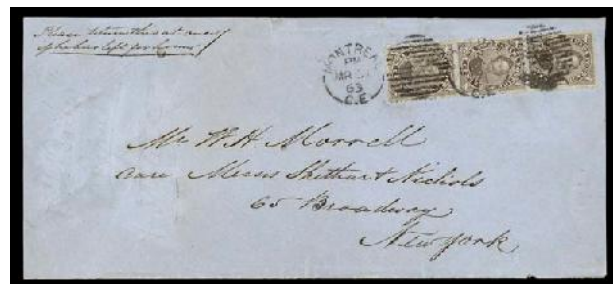 Please return this at once if
he has left for home
MONTREAL
PM
MR
63
C.E
Mr W. H. Morrell
Care Messrs & Nichols
65 Broadway
New York